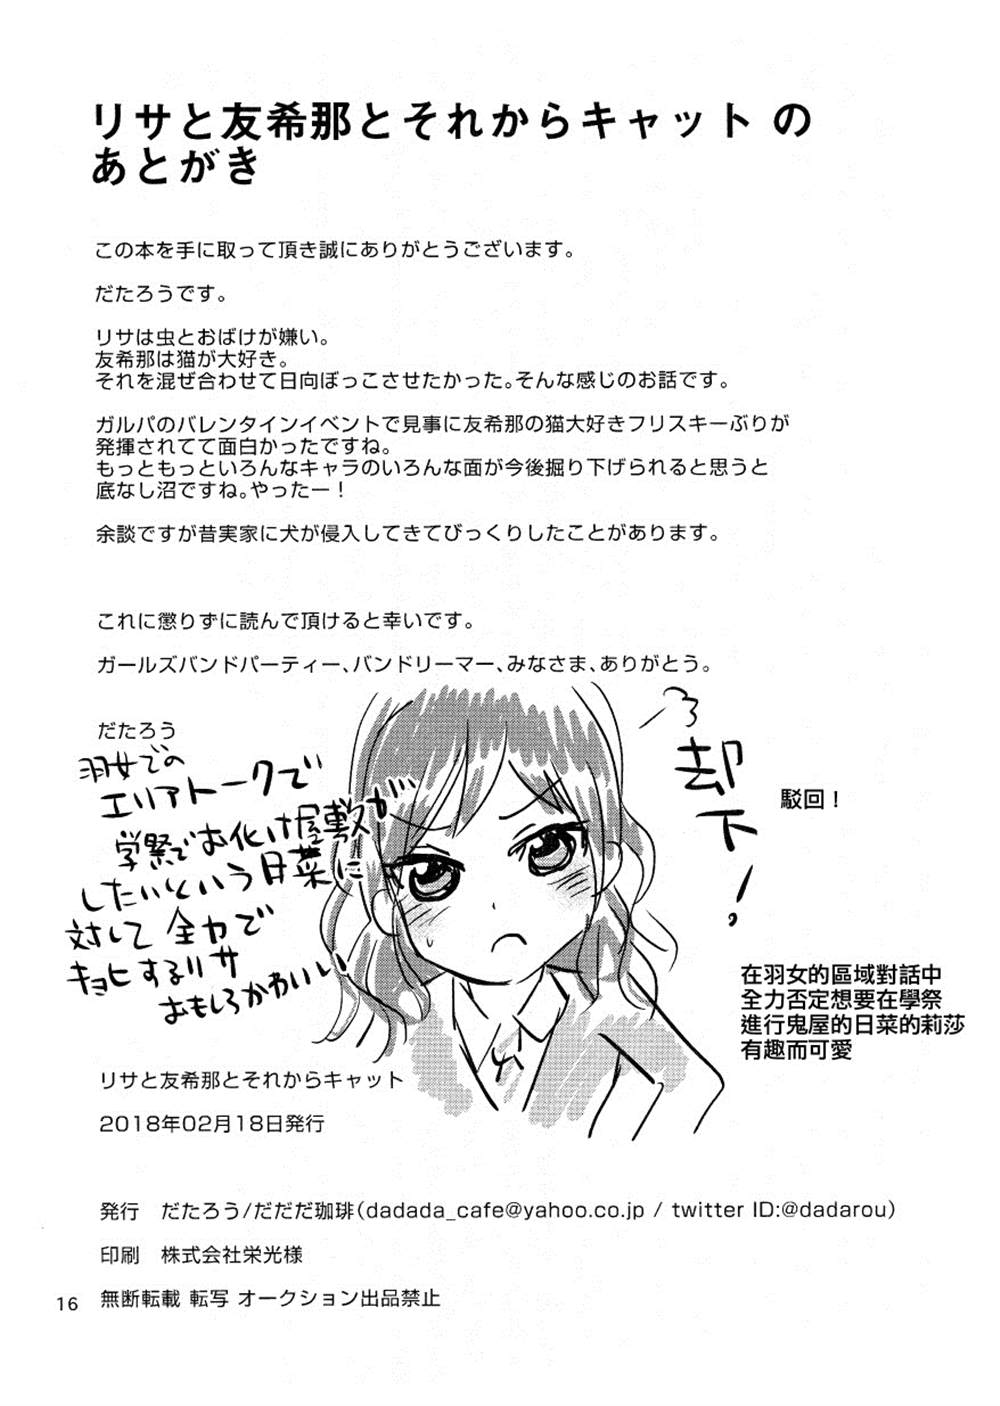 リサと友希那とそれからキャット の
あとがき
この本を手に取って頂き誠にありがとうございます。
だたろうです。
リサは虫とおばけが嫌い。
友希那は猫が大好き。
それを混ぜ合わせて日向ぼっこさせたかった。そんな感じのお話です。
ガルパのバレンタインイベントで見事に友希那の猫大好きフリスキーぶりが
発揮されてて面白かったですね。
もっともっといろんなキャラのいろんな面が今後掘り下げられると思うと
底なし沼ですね。やったー！
余談ですが昔実家に犬が侵入してきてびっくりしたことがあります。
これに懲りずに読んで頂けると幸いです。
ガールズバンドパーティー、バンドリーマー、みなさま、ありがとう。
だたろう
羽女での
エリアトークで
学祭でお化け屋敷が
したいという日菜に
対して 全力で
キョヒするリサ
おもしろかわいい
却下！
駁回！
在羽女的區域對話中
全力否定想要在學祭
進行鬼屋的日菜的莉莎
有趣而可愛
リサと友希那とそれからキャット
2018年02月18日発行
発行　だたろう/だだだ珈琲(dadada_cafe@yahoo.co.jp / twitter ID:@dadarou)
印刷　株式会社栄光様
無断転載 転写 オークション出品禁止
16